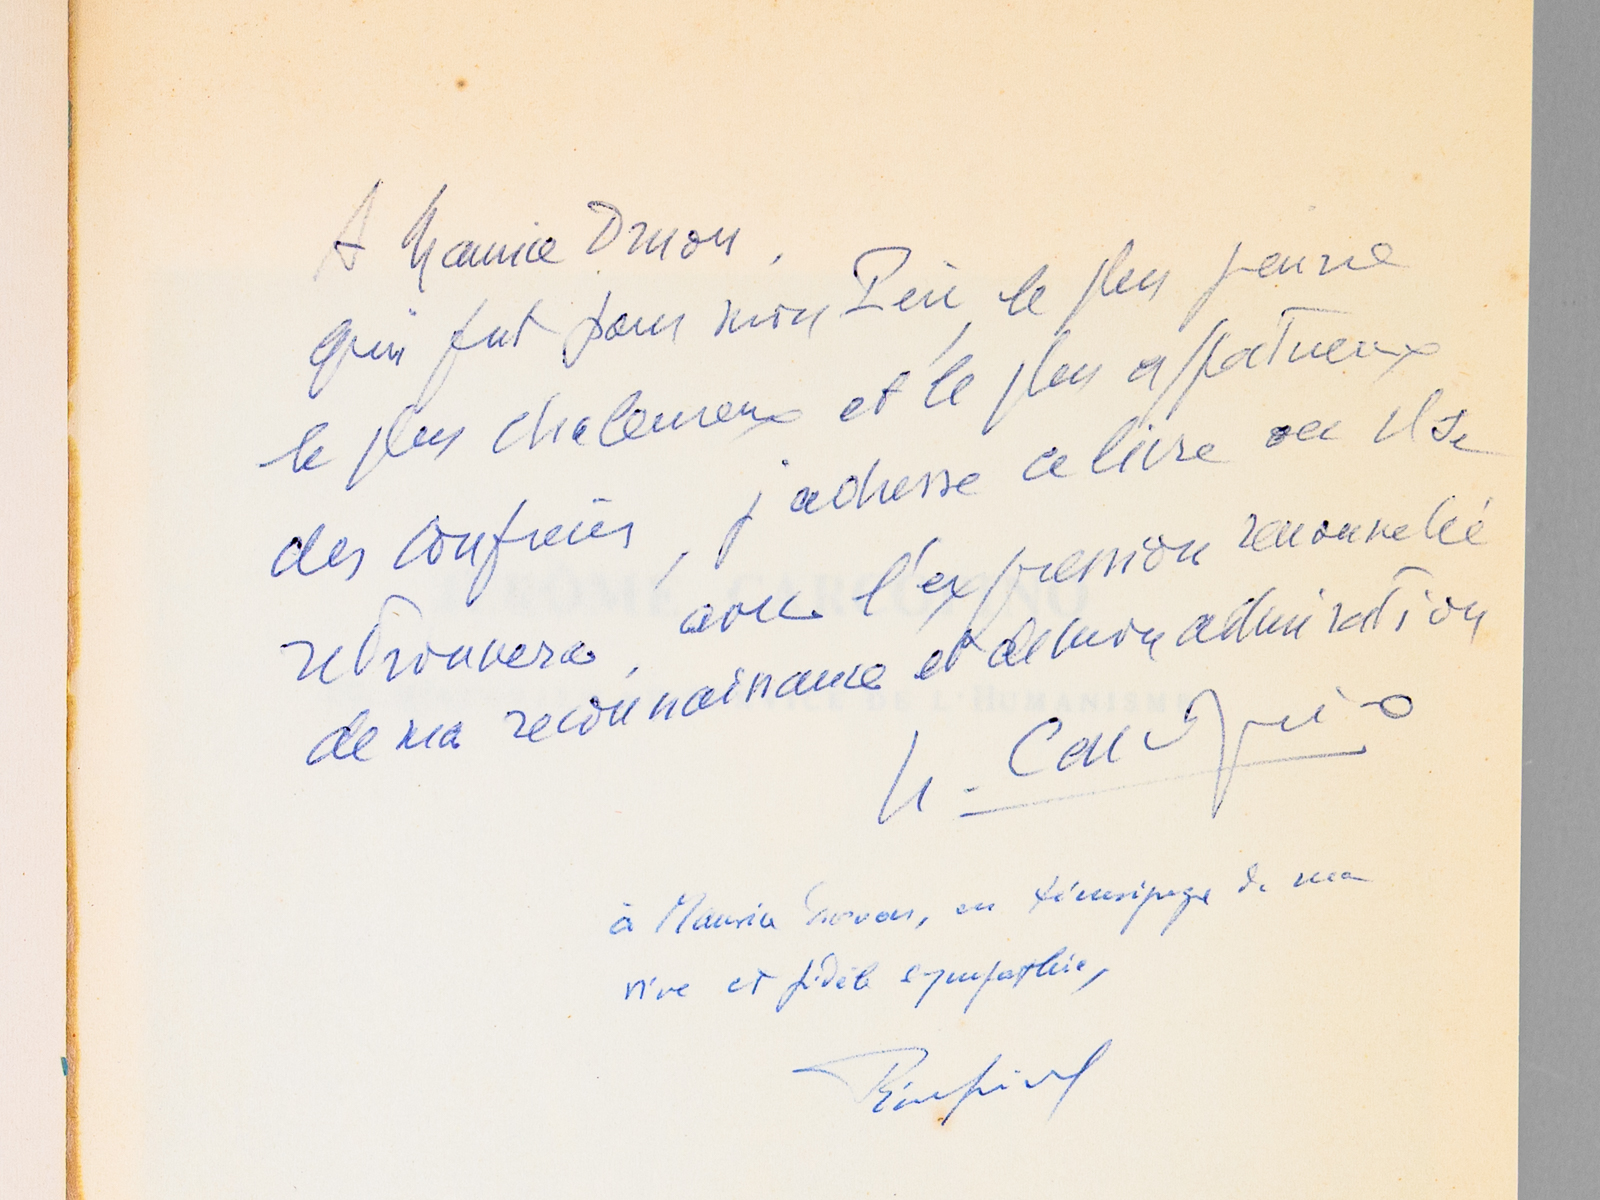 A Maurice Druon,
qui fut pour mon Père, le plus jeune
le plus chaleureux et le plus affectueux
des confrères, j'adresse ce livre où il se
retrouvera, avec l'expression renouvelée
de ma reconnaissance et de mon admiration
JÉRÔME CARCOPINO
DE L'HUMANISME
à Maurice Druon, en témoignage de ma
vive et fidèle sympathie,